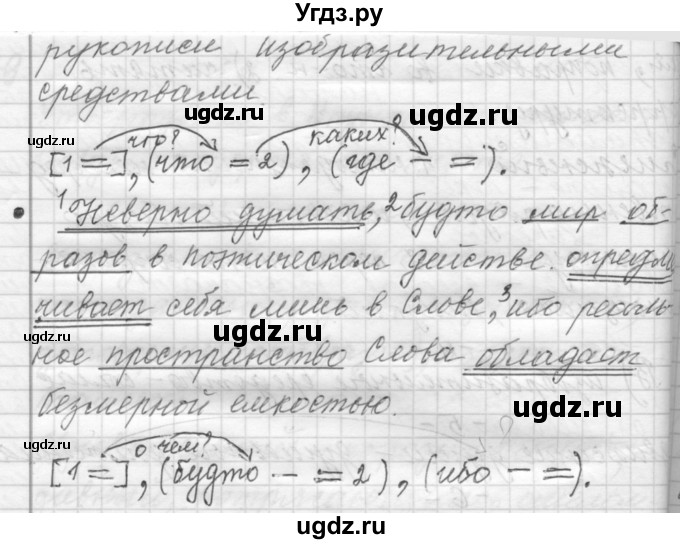 Угдз.ру
рукописи изобразительными
средствами
ugdz.ru ugdz.ru
что? каких?
[1 =], (что = 2), (где — =).
ugdz.ru
¹Неверно думать, ²будто мир об-
разов в поэтическом действе ограни
чивает себя лишь в Слове, ³ибо реаль-
ugdz.ru
ное пространство Слова обладает
ugdz.ru
безмерной емкостью.
ugdz.ru
о чем?
ugdz.ru
[1 =], (будто — = 2), (ибо — =).
ugdz.ru